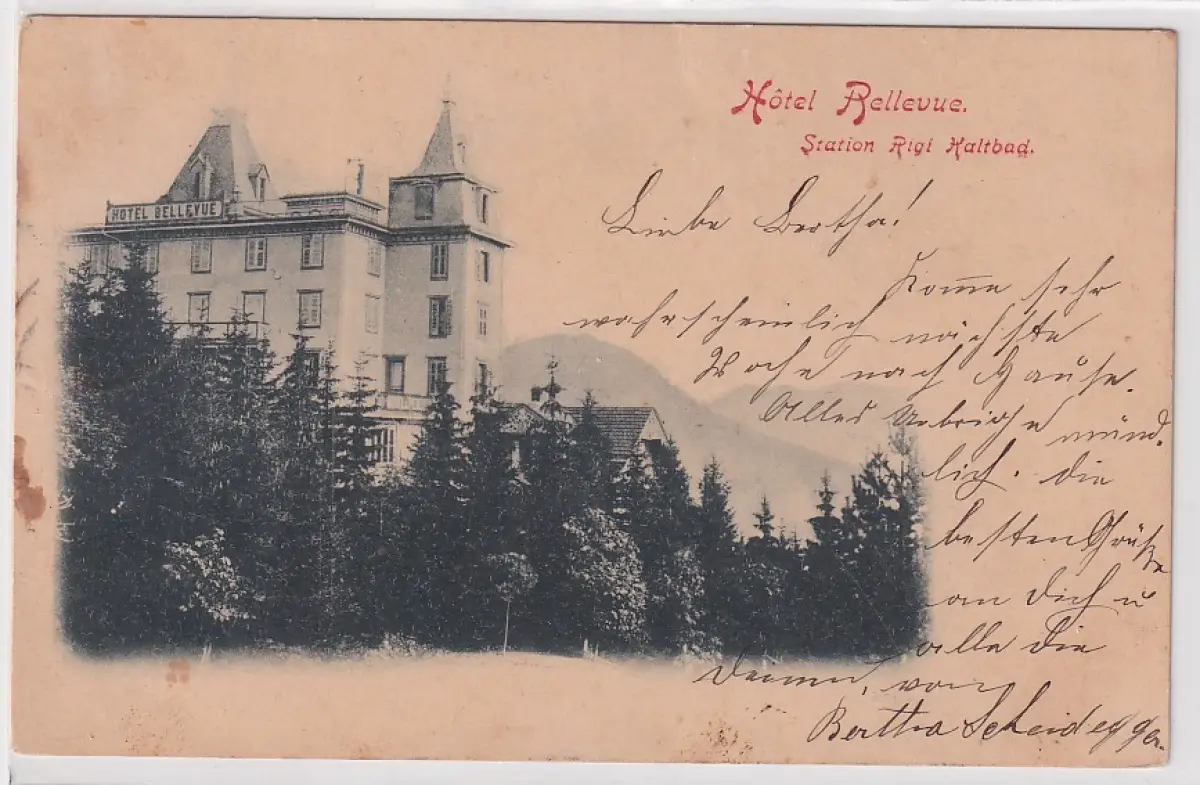 Hôtel Bellevue.
Station Rigi Kaltbad.
HOTEL BELLEVUE
Liebe Bertha!
Komme sehr
wahrscheinlich nächste
Woche nach Hause.
Alles Uebrige münd-
lich. Die
besten Grüße
an Dich u
alle die
Deinen, von
Bertha Scheidegger.